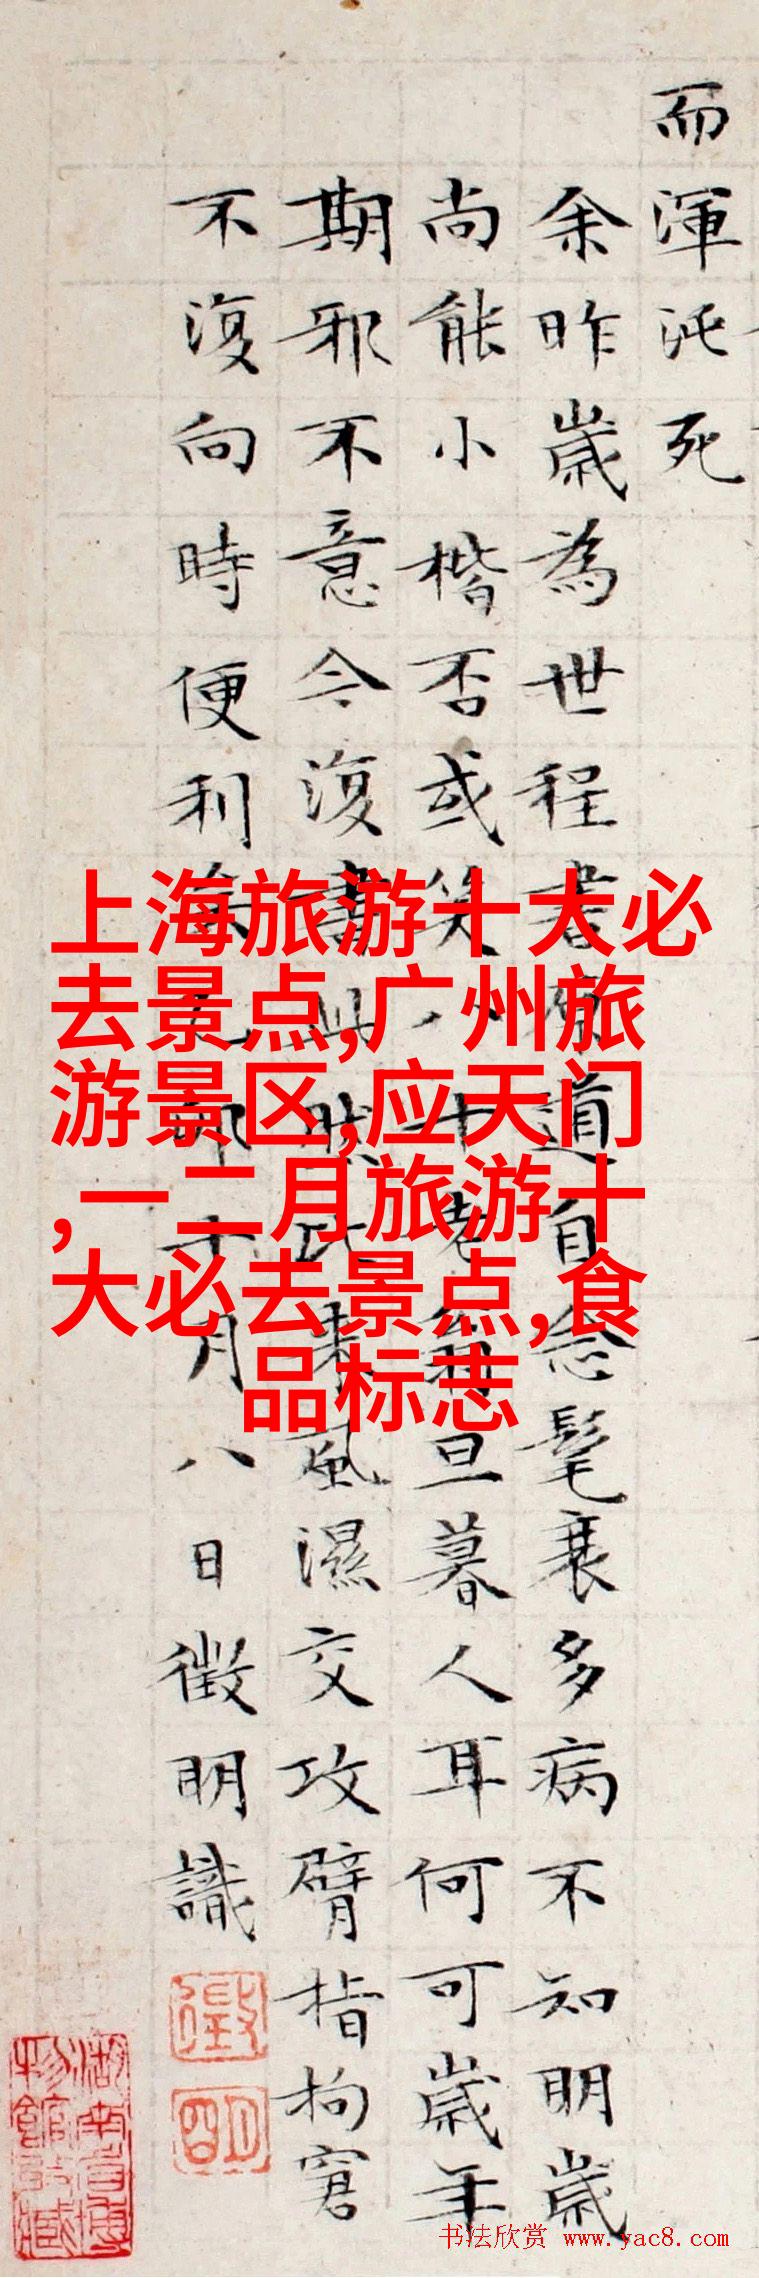 而渾沌死
余昨歲為世程書道自念髦衰多病不知明歲
尚能小楷否或笑八十老翁旦暮人耳何可歲年
期邪不意今復書此然比來風濕交攻臂指拘窘
不復向時便利卯十月八日徵明識
上海旅游十大必
去景点,广州旅
游景区,应天门
,一二月旅游十
大必去景点,食
品标志
湖南省博
物館收藏
书法欣赏 www.yac8.com